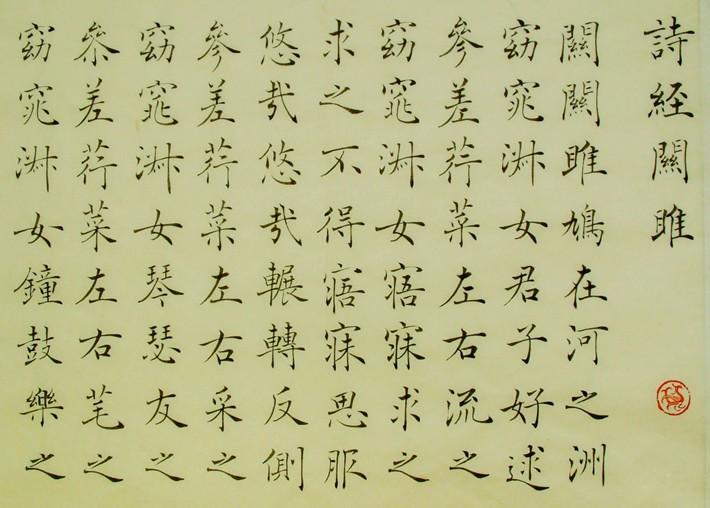 詩經關雎
關關雎鳩在河之洲
窈窕淋女君子好逑
參差荇菜左右流之
窈窕淋女寤寐求之
求之不得寤寐思服
悠哉悠哉輾轉反側
參差荇菜左右采之
窈窕淋女琴瑟友之
叅差荇菜左右芼之
窈窕淋女鐘鼓樂之